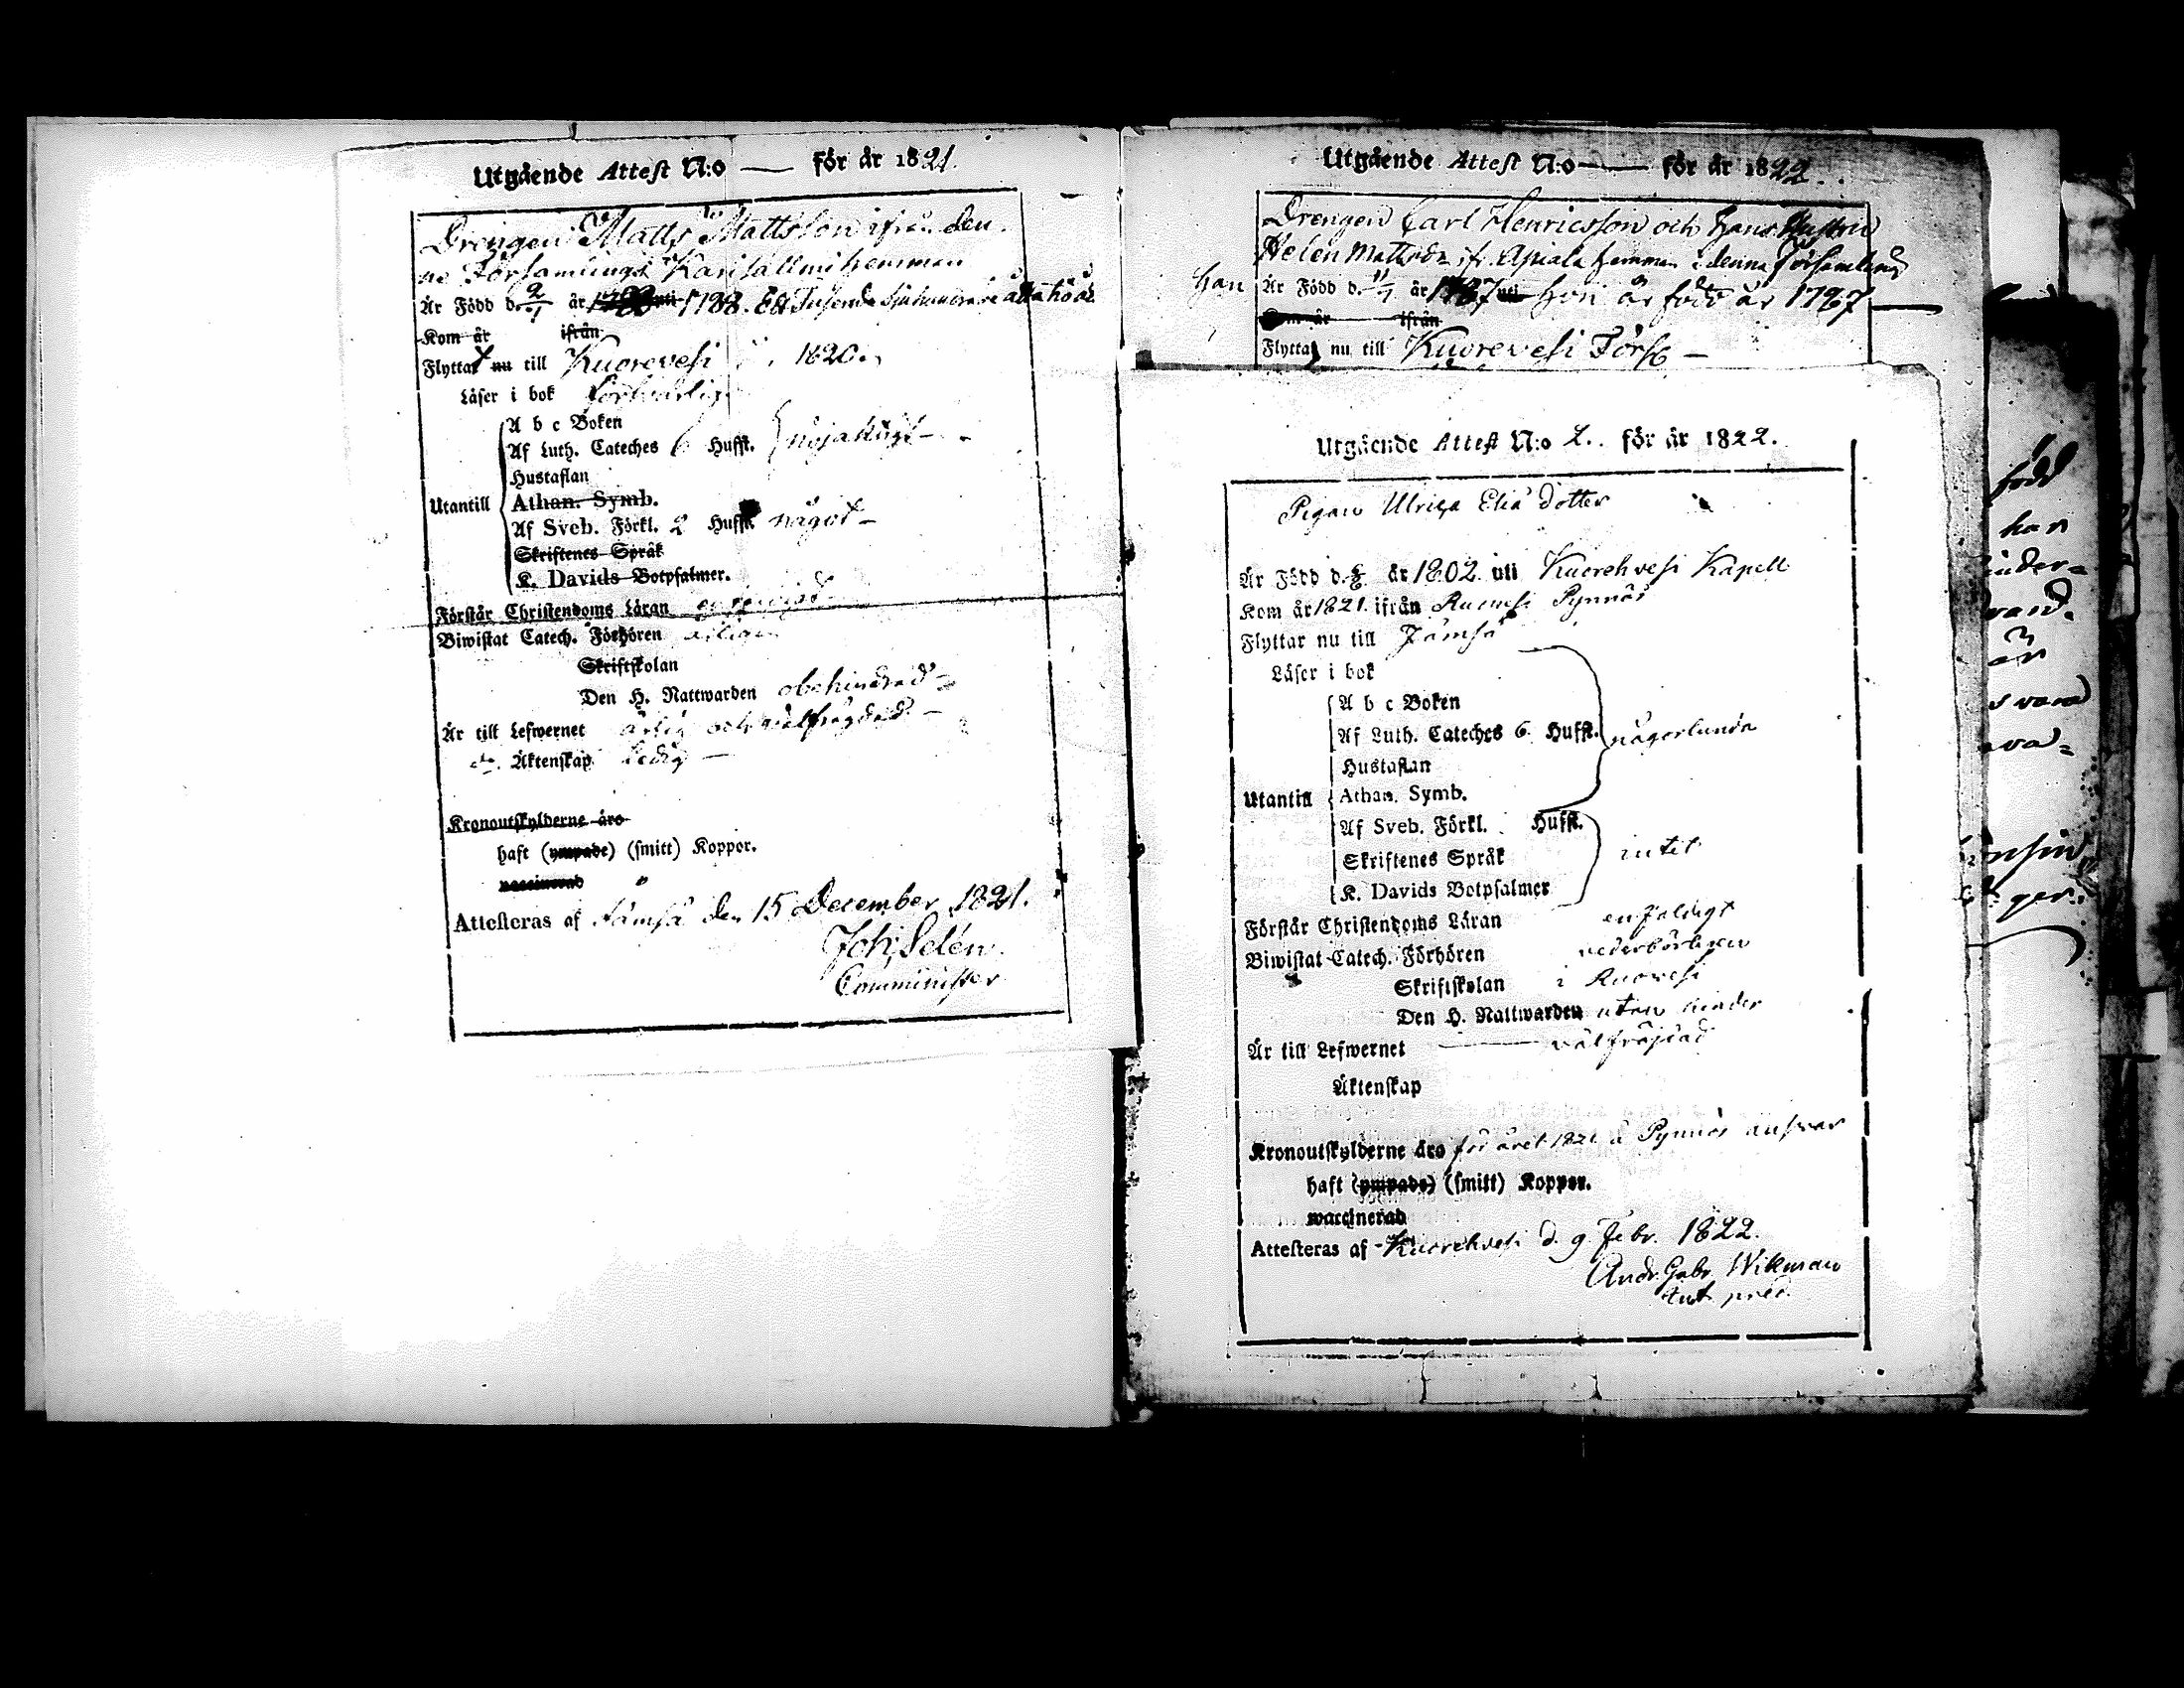 Utgående Attest N:o — för år 1821.
Drengen Matts Mattsson ifrån den
ne Församlings Karisallmi hemman
Är Född d. 2/1 år 1788. Ett Tusende Sjuhundrade åttatio åt
Kom år ifrån
Flyttar nu till Kuorevesi 1820.
Läser i bok försvarlig
A b c Boken
Af Luth. Cateches 6 Hufst. nöjaktigt
Hustaflan
Utantill Athan. Symb.
Af Sveb. Förkl. 2 Hufst. något
Skriftenes Språk
K. Davids Botpsalmer.
Förstår Christendoms Läran
Biwistat Catech. Förhören
Skriftskolan
Den H. Nattwarden obehindrad
Är till Lefwernet ärlig och välfrägdad
do. Äktenskap ledig
Kronoutskylderne äro
haft (ympade) (smitt) Koppor.
vaccinerad
Attesteras af Jämsä den 15 December 1821.
Joh. Selén
Comminister
Utgående Attest N:o — för år 1822.
Drengen Carl Henricsson och hans Hustru
Helen Mattsdr ifr. Apiala hemman i denna församling
han Är Född d. 11/7 år 1787 uti hon är född år 1787
Kom år ifrån
Flytta nu till Kuorevesi Förs
Utgående Attest N:o 2. för år 1822.
Pigan Ulrica Elia dotter
Är Född d. år 1802 uti Kuorehvesi Kapell
Kom år 1821. ifrån Ruovesi Pynnös
Flyttar nu till Jämsä
Läser i bok
A b c Boken
Af Luth. Cateches 6. Hufst. någorlunda
Hustaflan
Utantill Athan. Symb.
Af Sveb. Förkl. Hufst.
Skriftenes Språk intet
K. Davids Botpsalmer
Förstår Christendoms Läran enfaldigt
Biwistat Catech. Förhören vederbörligen
Skriftskolan i Ruovesi
Den H. Nattwarden utan hinder
Är till Lefwernet välfräjdad
Äktenskap
Kronoutskylderne äro för året 1821 å Pynnös ansvar
haft (ympade) (smitt) Koppor.
waccinerad
Attesteras af Kuorehvesi d. 9 Febr. 1822.
Andr. Gabr. Wikman
född
har
vand.
är